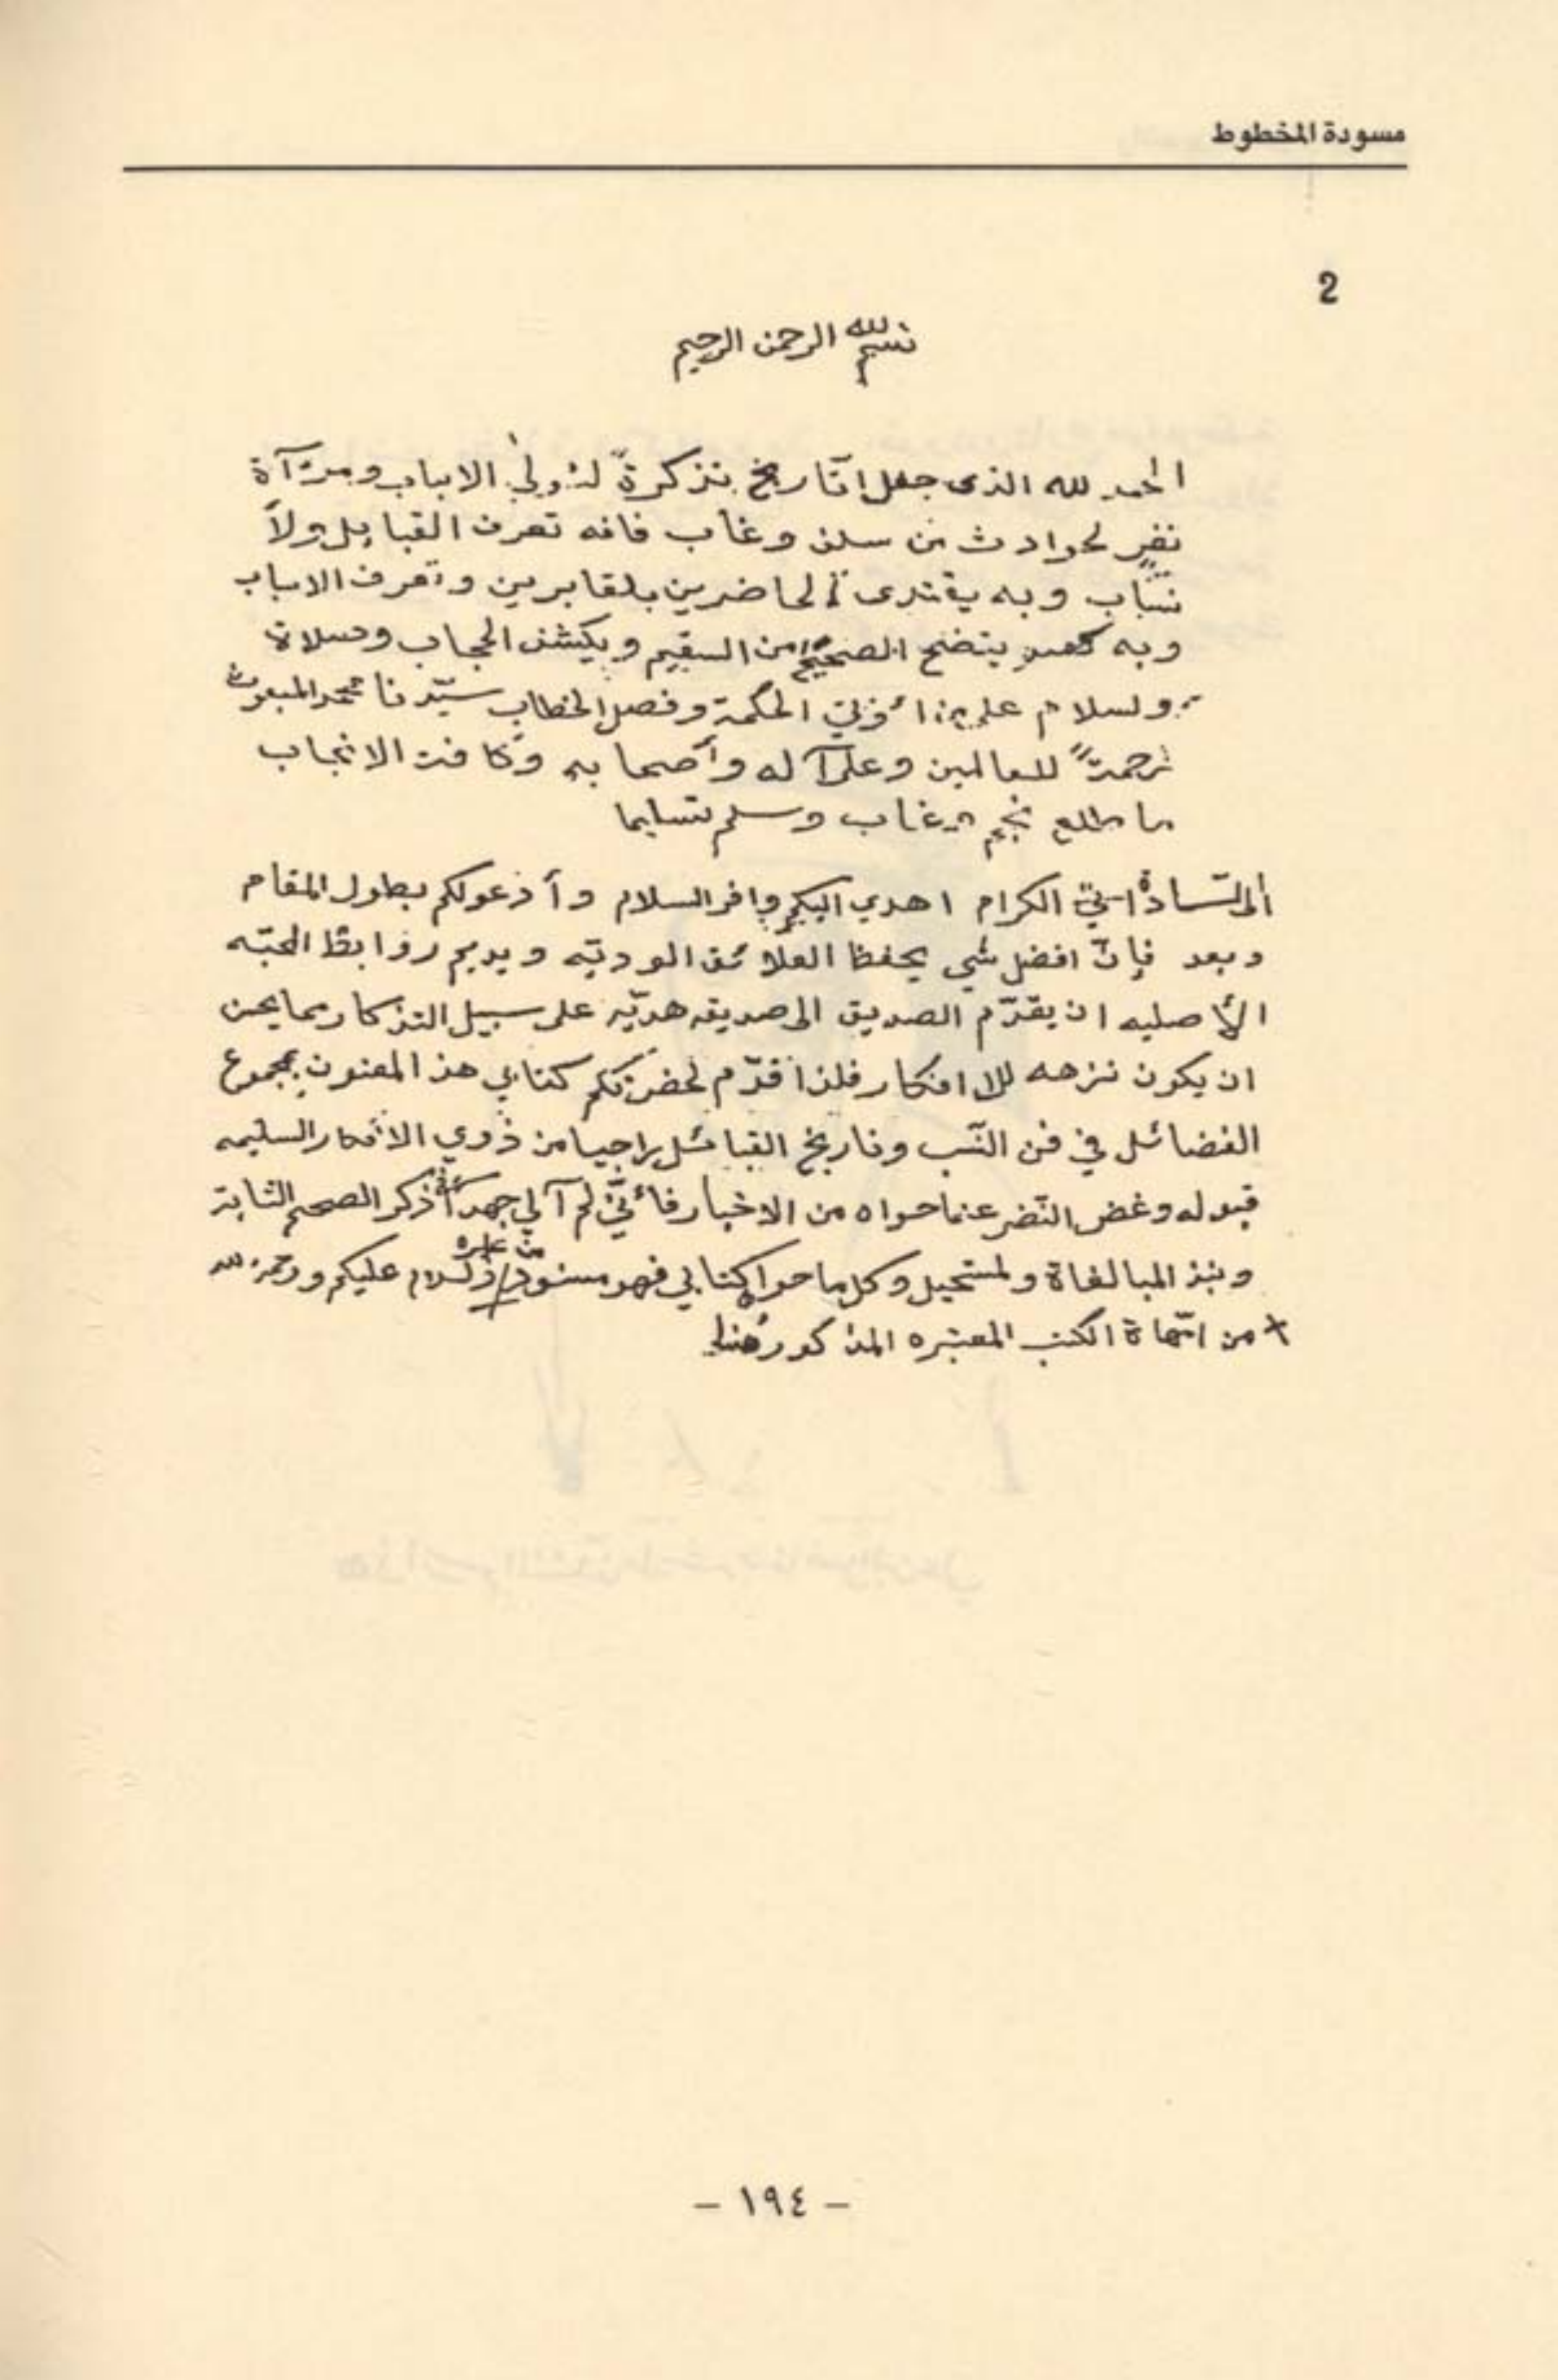 مسودة المخطوط
2
بسم الله الرحمن الرحيم
الحمد لله الذى جعل اتاريخ تذكرة لئولي الالباب ومرآة
لحوادث من سلف وغاب فانه تعرف القبايل ولا
نساب وبه يقتدى الحاضرين بلقابرين وتعرف الاسباب
وبه يتضح الصحيح من السقيم ويكشف الحجاب وصلاة
ولسلام على من أوتي الحكمة وفصل الخطاب سيّدنا محمد المبعوث
رحمةً للعالمين وعلى آله وأصحابه وكافت الانجاب
ما طلع نجم وغاب وسلم تسليما
الى السّادة الكرام اهدي اليكم وافر السلام وأدعولكم بطول المقام
وبعد فإنّ افضل شي يحفظ العلائق الوديّه ويديم روابط المحبّه
الأصليه ان يقدّم الصديق الى صديقه هديّه على سبيل التذكار مما يحسن
ان يكون نزهه للافكار فلذا قدّم لحضرتكم كتابي هذ المعنون بمجموع
الفضائل في فن النّسب وتاريخ القبائل راجيا من ذوي الافكار السليمه
قبوله وغض النّضر عنما حواه من الاخبار فائنّي لم آلي جهداً في ذكر الصحيح الثابة
ونبذ المبالغاة ولمستحيل وكل ما حواه كتابي فهو منقول ولسلام عليكم ورحمة الله
+ من امّهاة الكتب المعتبره المذكور هنا
– ١٩٤ –